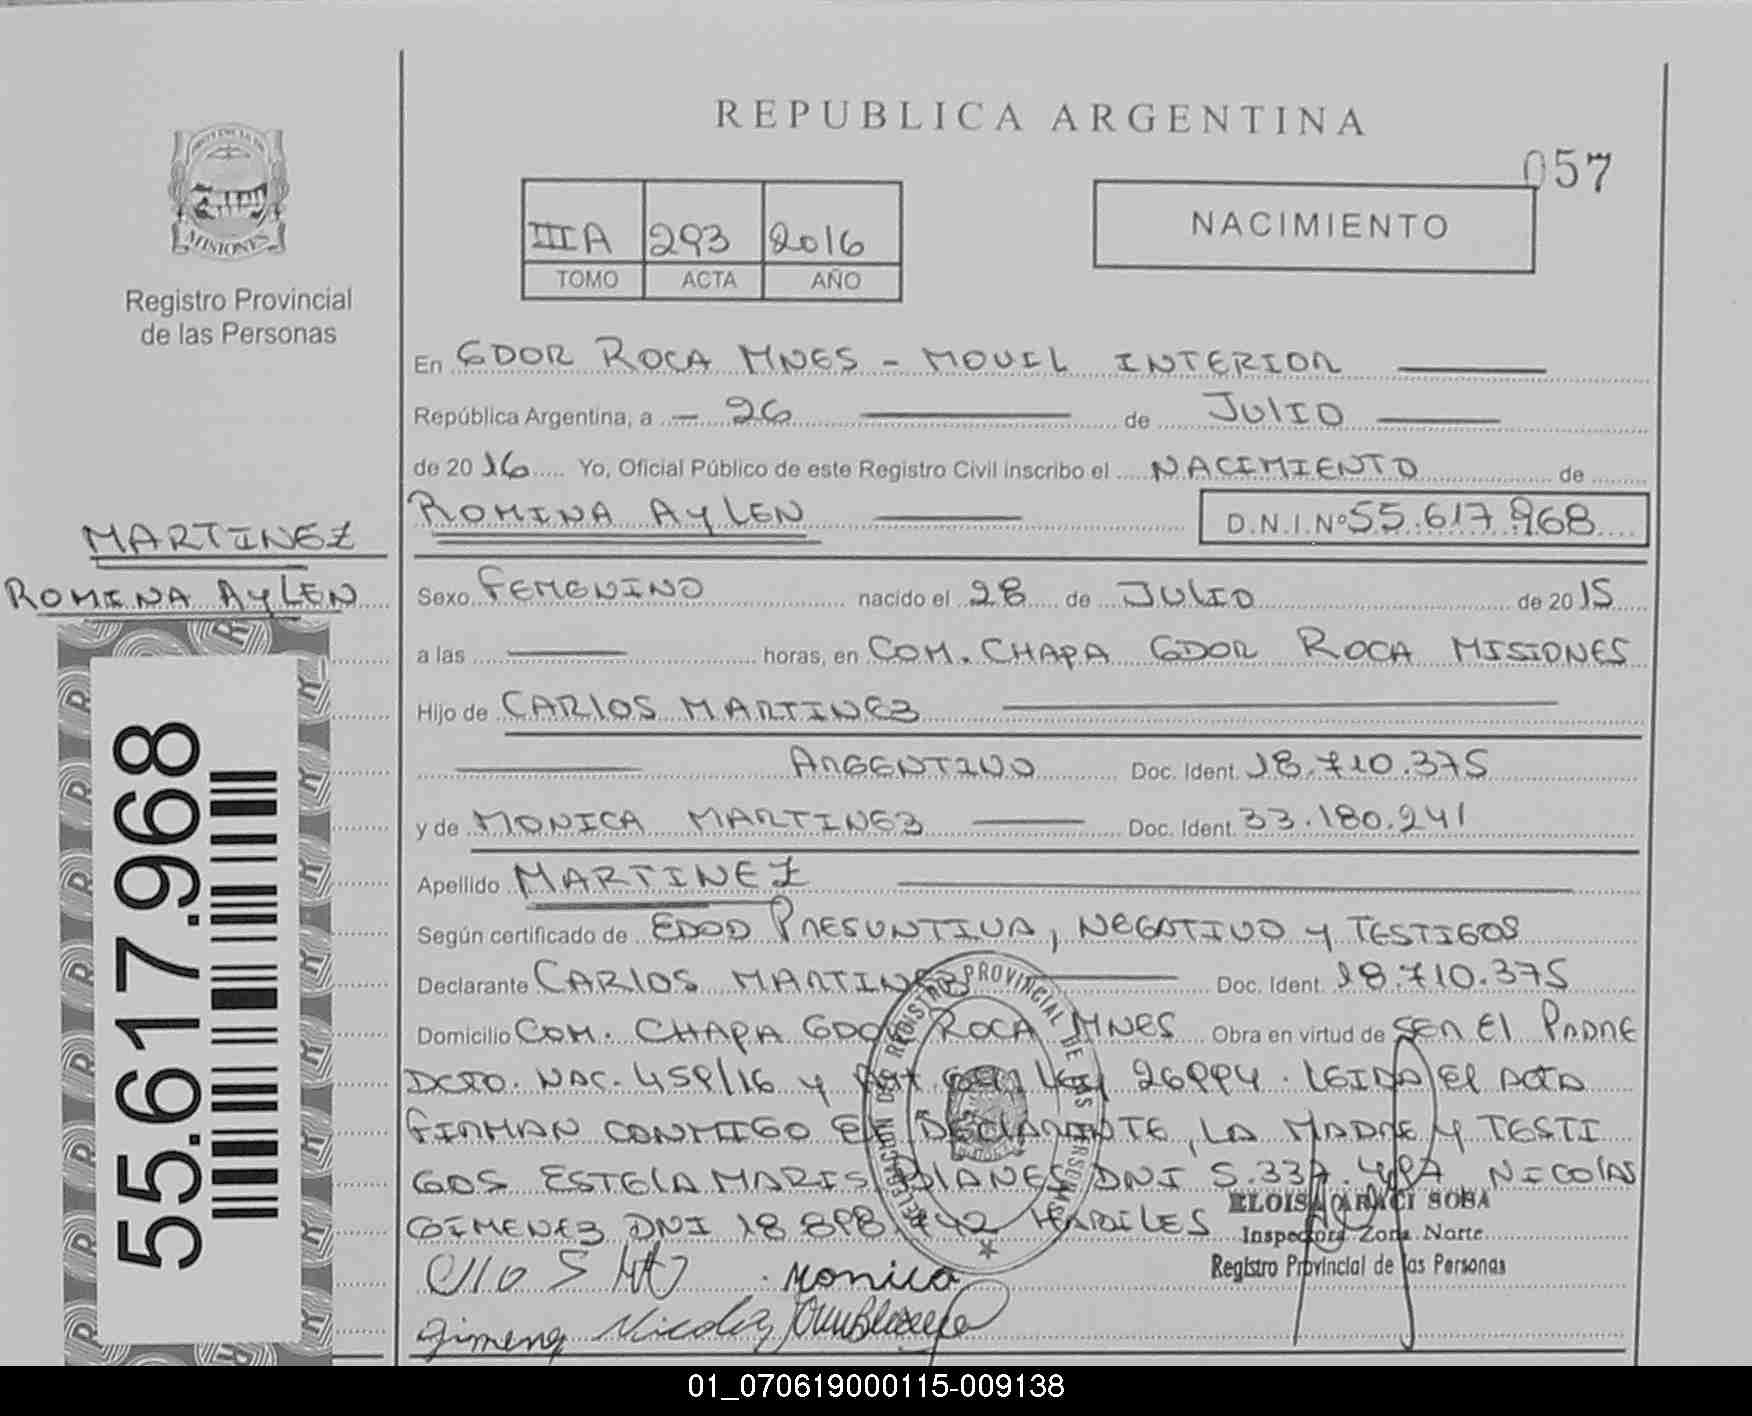 REPUBLICA ARGENTINA
057
PROVINCIA DE MISIONES
Registro Provincial
de las Personas
IIIA 293 2016
TOMO ACTA AÑO
NACIMIENTO
En GDOR ROCA MNES - MOVIL INTERIOR
República Argentina, a - 26 de JULIO
de 2016 Yo, Oficial Público de este Registro Civil inscribo el NACIMIENTO de
ROMINA AYLEN D.N.I.Nº 55.617.968
MARTINEZ
ROMINA AYLEN
Sexo FEMENINO nacido el 28 de JULIO de 2015
a las horas, en COM. CHAPA GDOR ROCA MISIONES
Hijo de CARLOS MARTINEZ
ARGENTINO Doc. Ident. 18.710.375
y de MONICA MARTINEZ Doc. Ident. 33.180.241
Apellido MARTINEZ
Según certificado de EDAD PRESUNTIVA, NEGATIVO Y TESTIGOS
Declarante CARLOS MARTINEZ Doc. Ident. 18.710.375
Domicilio COM. CHAPA GDOR ROCA MNES Obra en virtud de SER EL PADRE
DCTO. NAC. 459/16 y Ley 26994. LEIDA EL ACTA
FIRMAN CONMIGO EL DECLARANTE, LA MADRE Y TESTI
GOS ESTELA MARIS DNI 5.337.497 NICOLAS
GIMENEZ DNI 18 898 742 HABILES
ELOISA ARACI SOSA
Inspectora Zona Norte
Registro Provincial de las Personas
Monica
Gimenez Nicolas
REGISTRO PROVINCIAL DE LAS PERSONAS
55.617.968
01_070619000115-009138